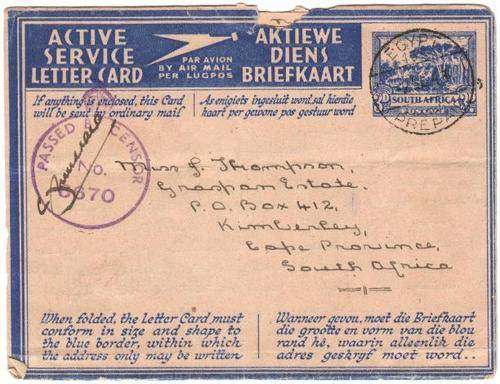 ACTIVE
SERVICE
LETTER CARD
PAR AVION
BY AIR MAIL
PER LUGPOS
AKTIEWE
DIENS
BRIEFKAART
If anything is enclosed, this Card
will be sent by ordinary mail
As enigiets ingesluit word, sal hierdie
kaart per gewone pos gestuur word
EGYPT
PREPAID
SOUTH AFRICA
PASSED BY CENSOR
No.
6670
Miss J. Thompson,
Graspan Estate.
P.O. Box 412,
Kimberley,
Cape Province,
South Africa
When folded, the letter Card must
conform in size and shape to
the blue border, within which
the address only may be written
Wanneer gevou, moet die Briefkaart
die grootte en vorm van die blou
rand hê, waarin alleenlik die
adres geskryf moet word..